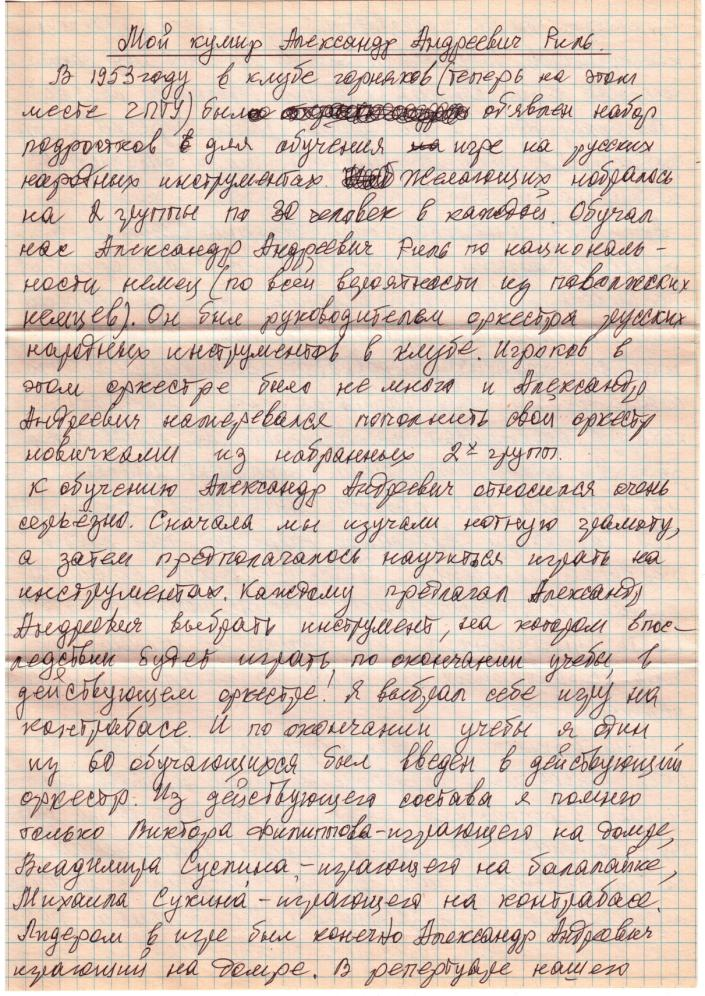 Мой кумир Александр Андреевич Риль.
В 1953 году в клубе горняков (теперь на этом
месте ГПТУ) был объявлен набор
подростков для обучения игре на русских
народных инструментах. Желающих набралось
на 2 группы по 30 человек в каждой. Обучал
нас Александр Андреевич Риль по националь-
ности немец (по всей вероятности из поволжских
немцев). Он был руководителем оркестра русских
народных инструментов в клубе. Игроков в
этом оркестре было не много и Александр
Андреевич намеревался пополнить свой оркестр
новичками из набранных 2х групп.
К обучению Александр Андреевич относился очень
серьёзно. Сначала мы изучали нотную грамоту,
а затем предполагалось научиться играть на
инструментах. Каждому предлагал Александр
Андреевич выбрать инструмент, на котором впос-
ледствии будет играть, по окончании учебы, в
действующем оркестре! Я выбрал себе игру на
контрабасе. И по окончании учебы я один
из 60 обучающихся был введен в действующий
оркестр. Из действующего состава я помню
только Виктора Филиппова-играющего на домре,
Владимира Суслина,-играющего на балалайке,
Михаила Сухина-играющего на контрабасе.
Лидером в игре был конечно Александр Андреевич
играющий на домре. В репертуаре нашего